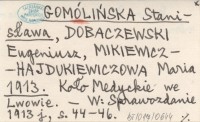 GOMÓLIŃSKA Stani-
sława, DOBACZEWSKI
Eugeniusz, MIKIEWICZ-
-HAJDUKIEWICZOWA Maria
1913. Koło Medyckie we
Lwowie. – W: Sprawozdanie
1913 j., s. 44-46.